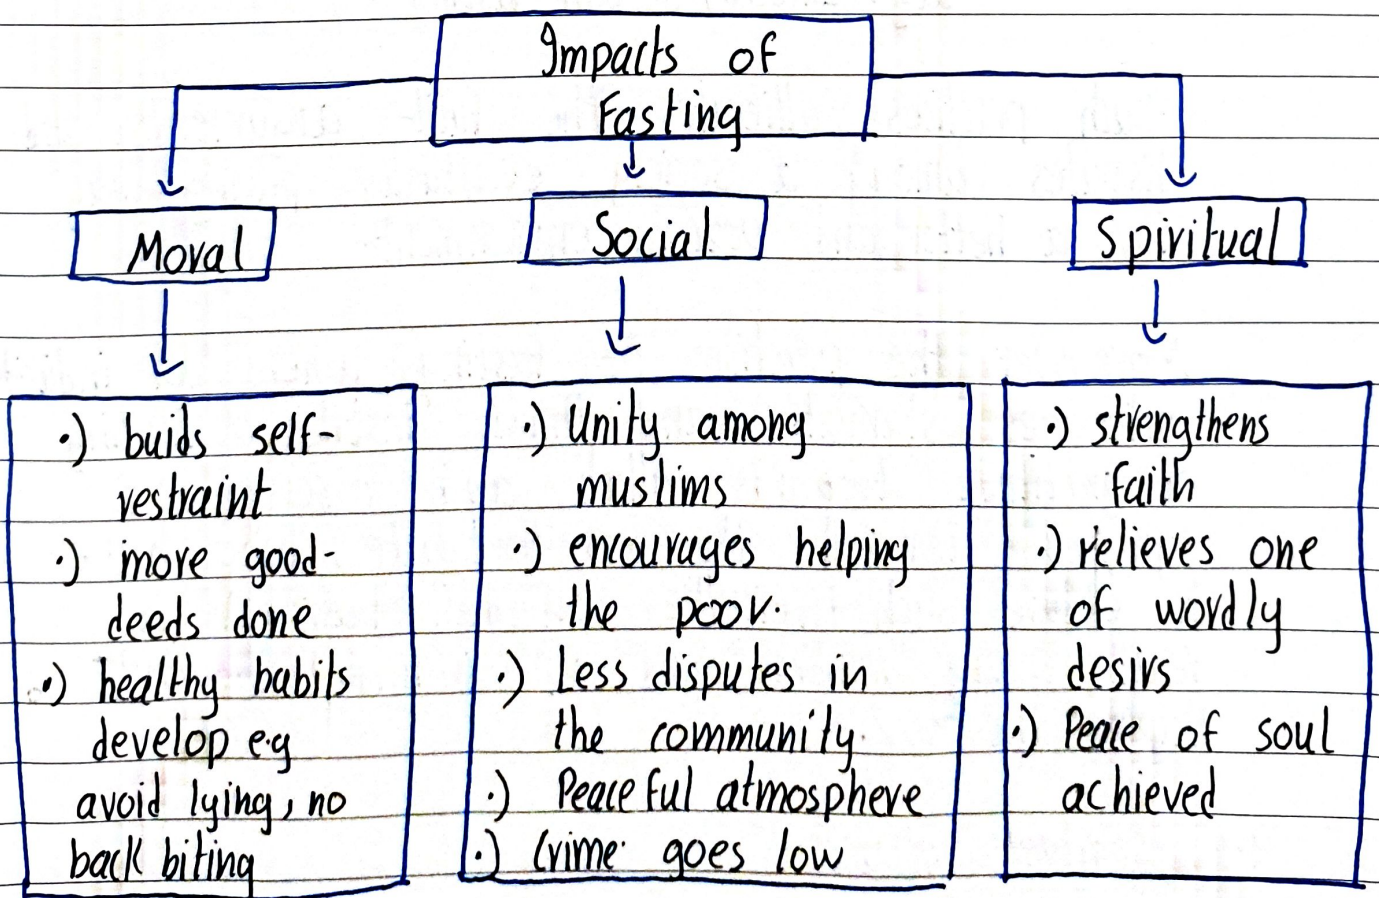 Impacts of
Fasting
Moral
Social
Spiritual
•) buids self-
restraint
•) more good-
deeds done
•) healthy habits
develop e.g
avoid lying, no
back biting
•) Unity among
muslims
•) encourages helping
the poor.
•) Less disputes in
the community.
•) Peace ful atmosphere
•) Crime goes low
•) strengthens
faith
•) relieves one
of wordly
desirs
•) Peace of soul
achieved